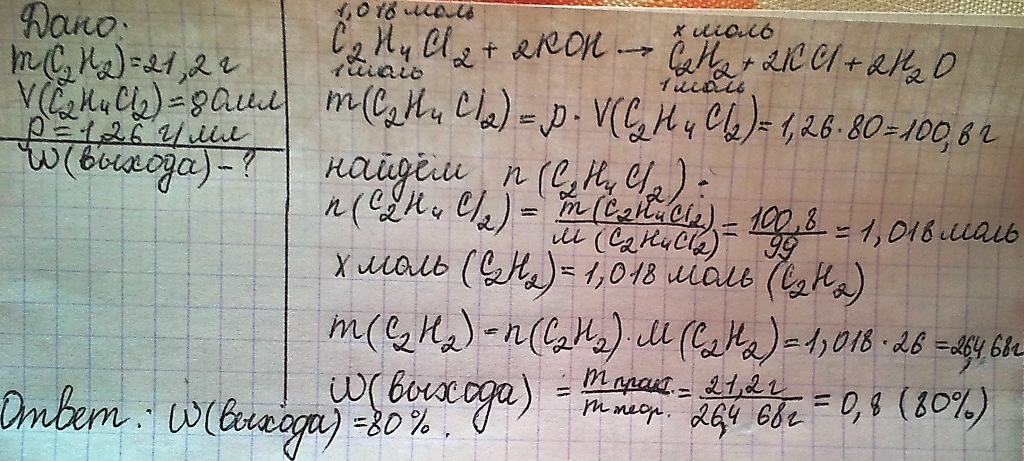 Дано:
m(C₂H₂)=21,2 г
V(C₂H₄Cl₂)=80мл
ρ=1,26 г/мл
W(выхода)-?
1,018 моль
x моль
C₂H₄Cl₂ + 2KOH → C₂H₂ + 2KCl + 2H₂O
1 моль
1 моль
m(C₂H₄Cl₂) = ρ · V(C₂H₄Cl₂) = 1,26 · 80 = 100,8 г
найдём n(C₂H₄Cl₂) :
n(C₂H₄Cl₂) = m(C₂H₄Cl₂)/M(C₂H₄Cl₂) = 100,8/99 = 1,018 моль
x моль (C₂H₂) = 1,018 моль (C₂H₂)
m(C₂H₂) = n(C₂H₂) · M(C₂H₂) = 1,018 · 26 = 26,468г
W(выхода) = m практ./m теор. = 21,2 г/26,468г = 0,8 (80%)
Ответ: W(выхода) = 80%.